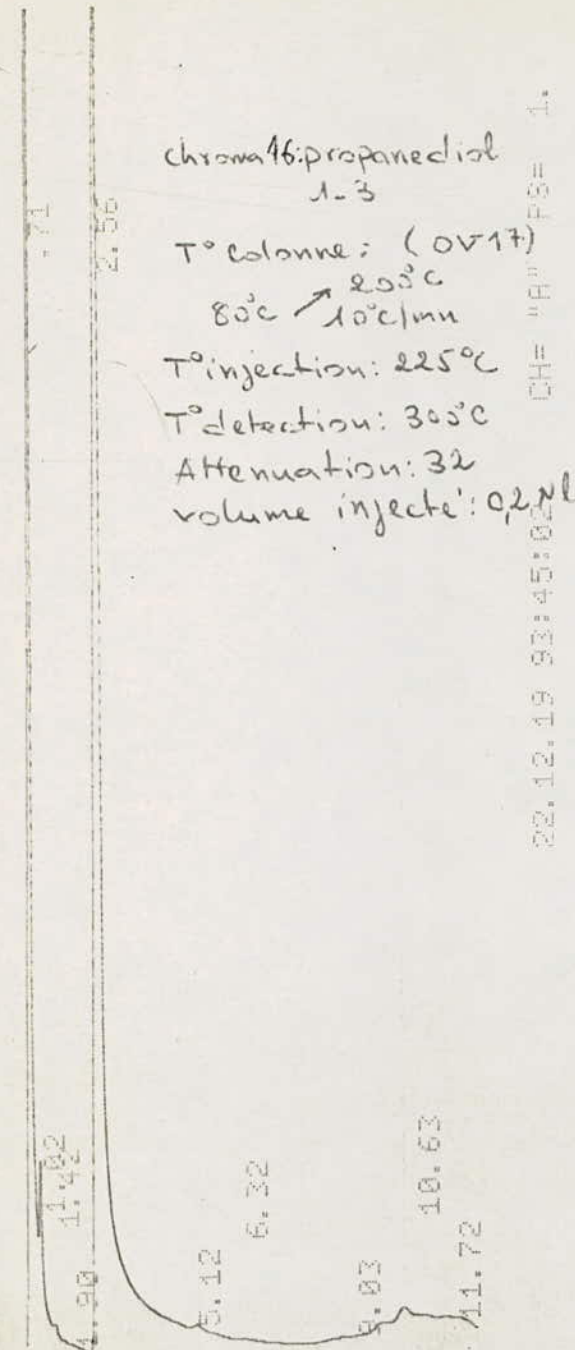 chroma 16: propanediol
1-3
T° Colonne: (OV17)
80°c ↗ 200°C
10°c/mn
T° injection: 225°C
T° detection: 300°C
Attenuation: 32
volume injecté: 0,2 µl
CH= "A" PS= 1.
22.12.19 93:45:02
.71
2.56
1.02
1.42
1.90
5.12
6.32
9.03
10.63
11.72